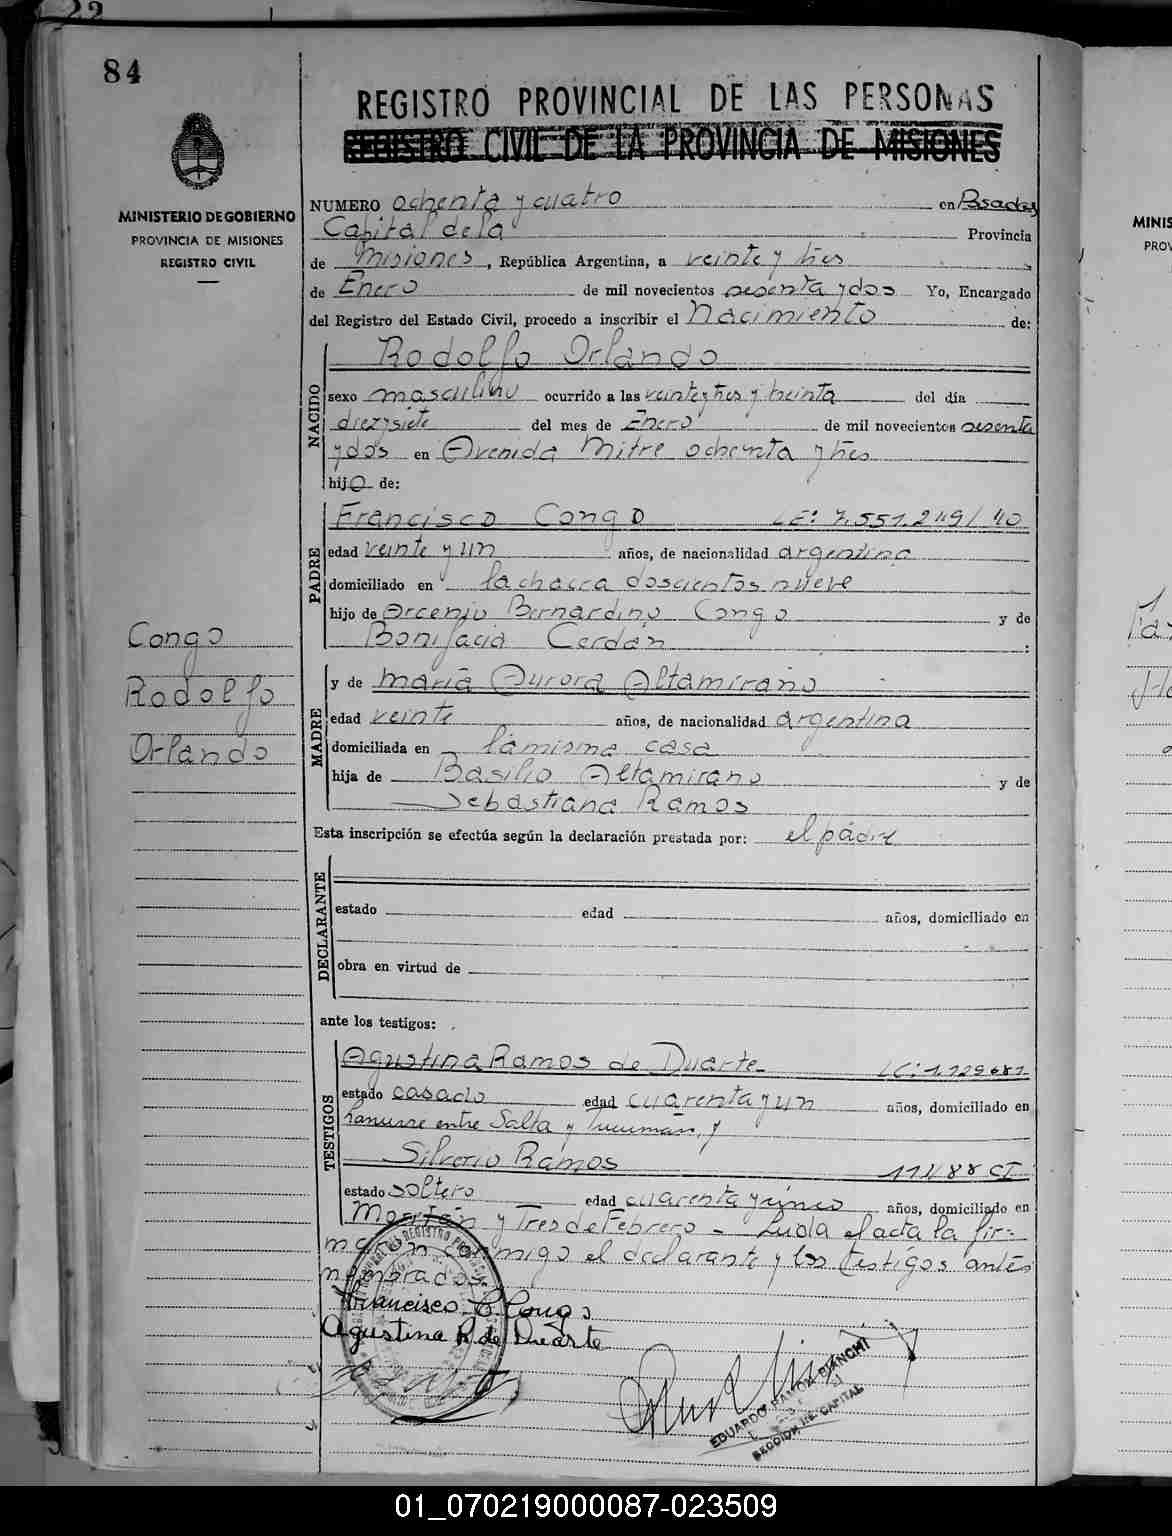 84
REGISTRO PROVINCIAL DE LAS PERSONAS
REGISTRO CIVIL DE LA PROVINCIA DE MISIONES
MINISTERIO DE GOBIERNO
PROVINCIA DE MISIONES
REGISTRO CIVIL
NUMERO ochenta y cuatro en Posadas
Capital de la Provincia
de Misiones, República Argentina, a veinte y tres
de Enero de mil novecientos sesenta y dos Yo, Encargado
del Registro del Estado Civil, procedo a inscribir el Nacimiento de:
NACIDO
Rodolfo Orlando
sexo masculino ocurrido a las veinte y tres y treinta del día
diez y siete del mes de Enero de mil novecientos sesenta
y dos en Avenida Mitre ochenta y tres
hijo de:
PADRE
Francisco Congo LE: 7.551.249/40
edad veinte y un años, de nacionalidad argentina
domiciliado en la chacra doscientos nueve
hijo de Arcenio Bernardino Congo y de
Bonifacia Cerdán :
MADRE
y de María Aurora Altamirano
edad veinte años, de nacionalidad argentina
domiciliada en la misma casa
hija de Basilio Altamirano y de
Sebastiana Ramos
Congo
Rodolfo
Orlando
Esta inscripción se efectúa según la declaración prestada por: el padre
DECLARANTE
estado edad años, domiciliado en
obra en virtud de
ante los testigos:
TESTIGOS
Agustina Ramos de Duarte LC: 1.129.681
estado casado edad cuarenta y un años, domiciliado en
Lanusse entre Salta y Tucumán, y
Silverio Ramos 11488 CI
estado soltero edad cuarenta y cinco años, domiciliado en
Martín y Tres de Febrero - Leída el acta la fir-
maron conmigo el declarante y los testigos antes
nombrados.
Francisco B. Congo
Agustina R de Duarte
EDUARDO RAMON BIANCHI
SECCION CAPITAL
MINIS
PROV
01_070219000087-023509